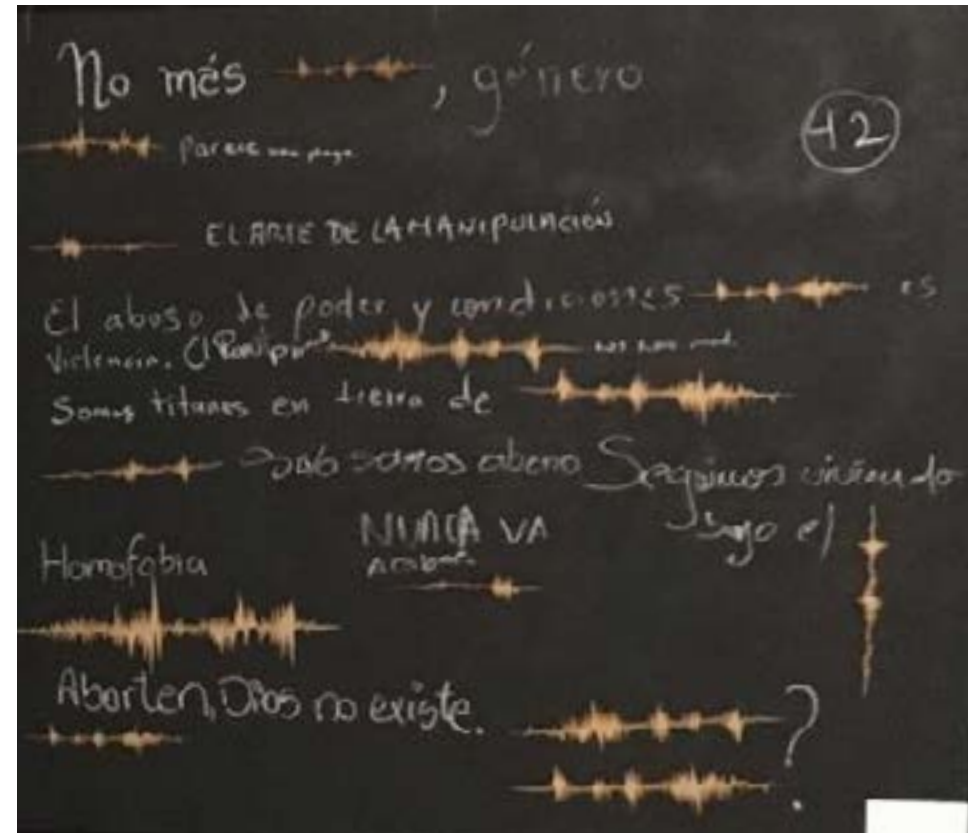 No más , género
42
Parece una plaga
EL ARTE DE LA MANIPULACIÓN
El abuso de poder y condiciones es
Violencia. El
Somos titanes en tierra de
somos abono Seguimos viviendo
bajo el
Homofobia
NUNCA VA
Acabar
Aborten, Dios no existe.
?